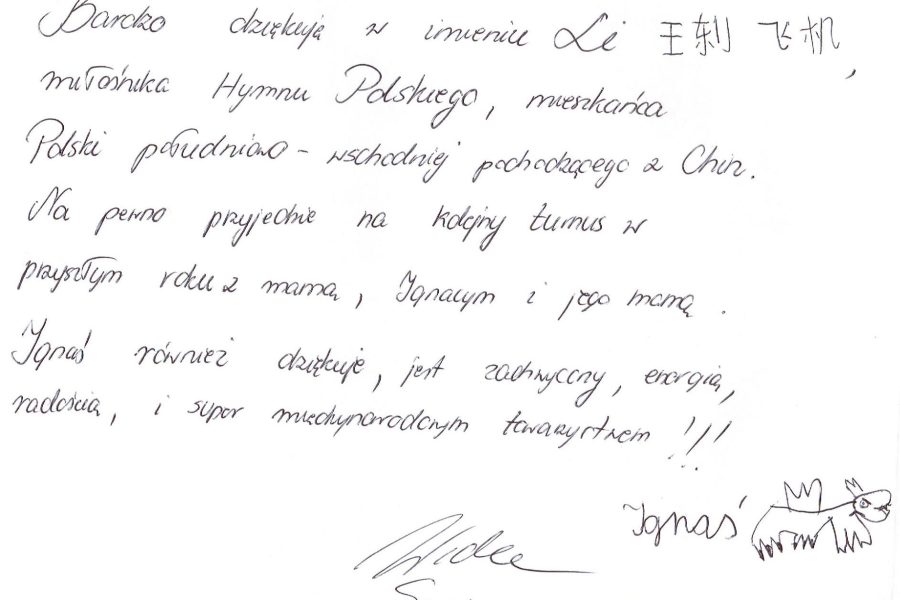 Bardzo dziękuję w imieniu Li 王 飞机,
miłośnika Hymnu Polskiego, mieszkańca
Polski południowo - wschodniej pochodzącego z Chin.
Na pewno przyjedzie na kolejny turnus w
przyszłym roku z mamą, Ignacym i jego mamą.
Ignaś również dziękuje, jest zachwycony, energią,
radością, i super międzynarodowym towarzystwem !!!
Ignaś